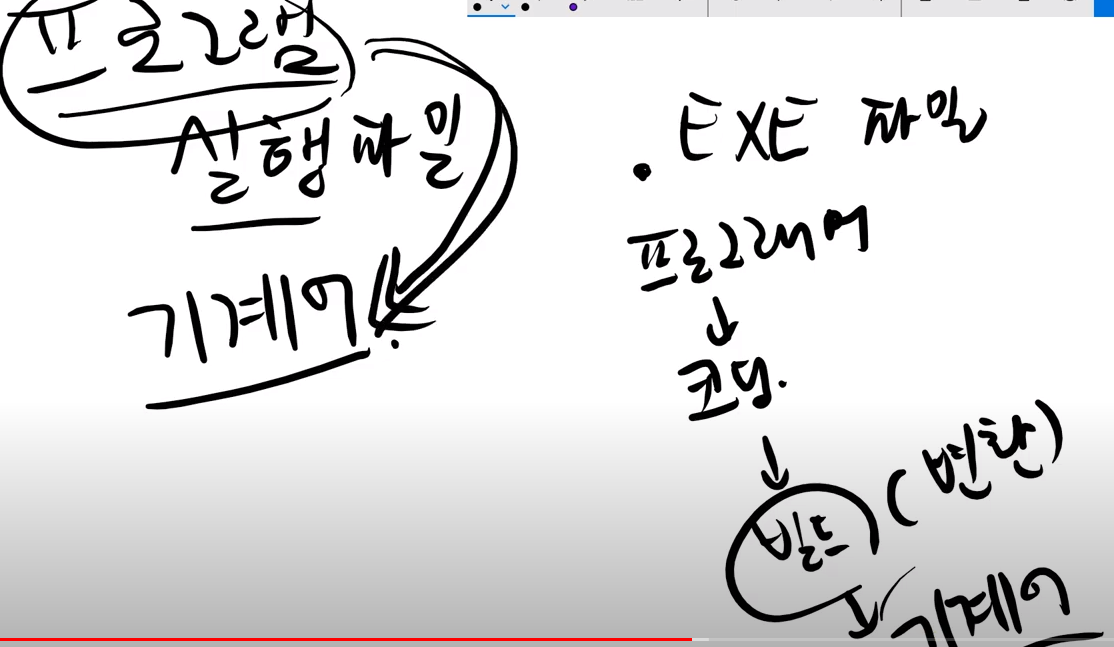 프로그램
실행파일
기계어
.EXE 파일
프로그래머
↓
코딩.
↓
빌드 (변환)
↓
기계어